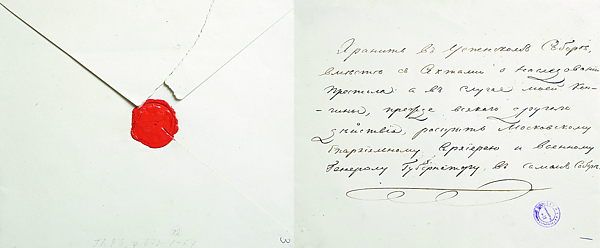 Хранить въ Успенскомъ Соборѣ,
вмѣстѣ съ Актами о наслѣдованіи
Престола а въ случаѣ моей кон-
-чины, прежде всякаго другаго
дѣйствія, Московскому
Епархіальному Архіерею и Военному
Генералу Губернатору, въ самомъ Соборѣ.
3